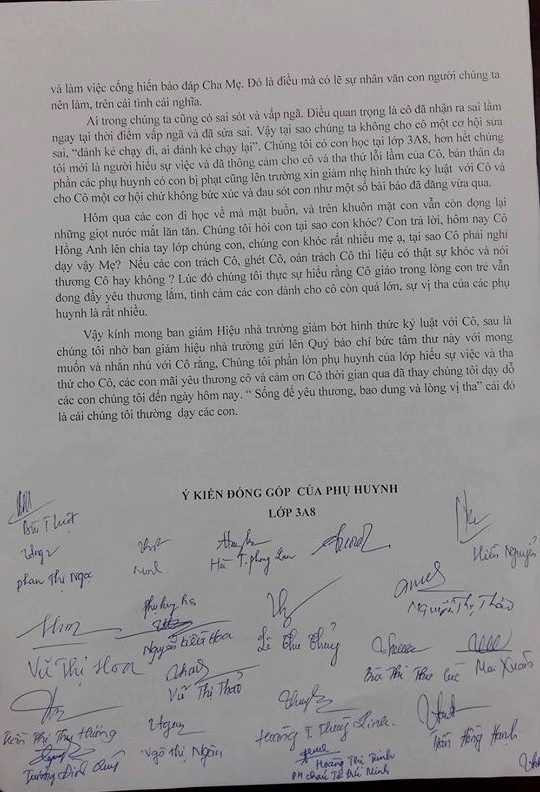 và làm việc cống hiến báo đáp Cha Mẹ. Đó là điều mà có lẽ sự nhân văn con người chúng ta
nên làm, trên cái tình cái nghĩa.
Ai trong chúng ta cũng có sai sót và vấp ngã. Điều quan trọng là cô đã nhận ra sai lầm
ngay tại thời điểm vấp ngã và đã sửa sai. Vậy tại sao chúng ta không cho cô một cơ hội sửa
sai, “đánh kẻ chạy đi, ai đánh kẻ chạy lại”. Chúng tôi có con học tại lớp 3A8, hơn hết chúng
tôi mới là người hiểu sự việc và đã thông cảm cho cô và tha thứ lỗi lầm của Cô, bản thân đa
phần các phụ huynh có con bị phạt cũng lên trường xin giảm nhẹ hình thức kỷ luật với Cô và
cho Cô một cơ hội chứ không bức xúc và đau sót con như một số bài báo đã đăng vừa qua.
Hôm qua các con đi học về mà mặt buồn, và trên khuôn mặt con vẫn còn đọng lại
những giọt nước mắt lăn tăn. Chúng tôi hỏi con tại sao con khóc? Con trả lời, hôm nay Cô
Hồng Anh lên chia tay lớp chúng con, chúng con khóc rất nhiều mẹ ạ, tại sao Cô phải nghỉ
dạy vậy Mẹ? Nếu các con trách Cô, ghét Cô, oán trách Cô thì liệu có thật sự khóc và nói
thương Cô hay không ? Lúc đó chúng tôi thực sự hiểu rằng Cô giáo trong lòng con trẻ vẫn
đong đầy yêu thương lắm, tình cảm các con dành cho cô còn quá lớn, sự vị tha của các phụ
huynh là rất nhiều.
Vậy kính mong ban giám Hiệu nhà trường giảm bớt hình thức kỷ luật với Cô, sau là
chúng tôi nhờ ban giám hiệu nhà trường gửi lên Quý báo chí bức tâm thư này với mong
muốn và nhắn nhủ với Cô rằng, Chúng tôi phần lớn phụ huynh của lớp hiểu sự việc và tha
thứ cho Cô, các con mãi yêu thương cô và cảm ơn Cô thời gian qua đã thay chúng tôi dạy dỗ
các con chúng tôi đến ngày hôm nay. “ Sống để yêu thương, bao dung và lòng vị tha” cái đó
là cái chúng tôi thường dạy các con.
Ý KIẾN ĐÓNG GÓP CỦA PHỤ HUYNH
LỚP 3A8
Phan Thị Ngọc
Hiền Nguyễn
Nguyễn Thị Thảo
Vũ Thị Hoa
Lê Thu Thủy
Vũ Thị Thảo
Mai Xuân
Ngô Thị Ngân
Hoàng T Thùy Linh.
Trần Hồng Hạnh
Hoàng Thị Trinh